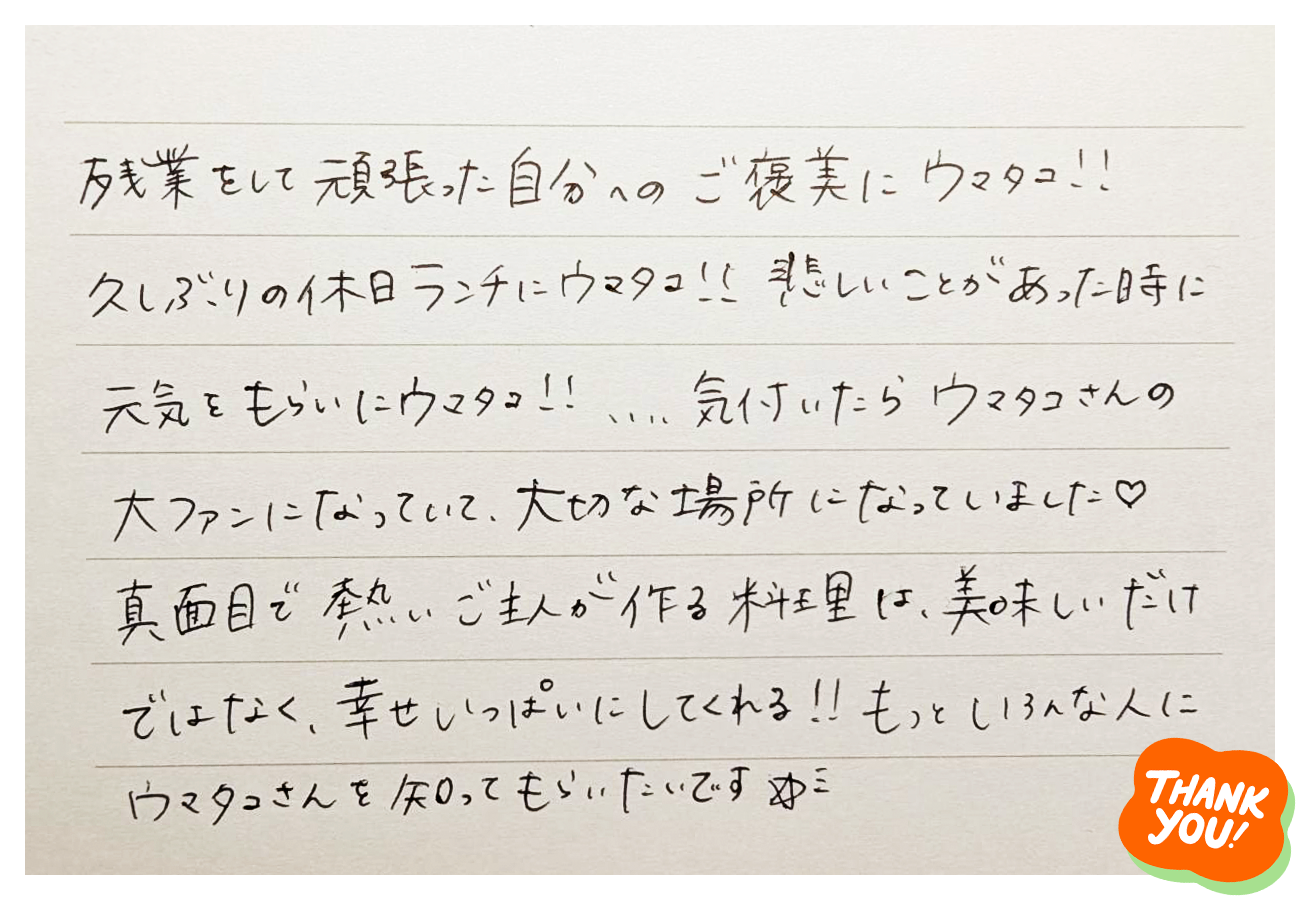 残業をして頑張った自分へのご褒美にウマタコ!!
久しぶりの休日ランチにウマタコ!! 悲しいことがあった時に
元気をもらいにウマタコ!! .... 気付いたらウマタコさんの
大ファンになっていて、大切な場所になっていました♡
真面目で熱いご主人が作る料理は、美味しいだけ
ではなく、幸せいっぱいにしてくれる!! もっといろんな人に
ウマタコさんを知ってもらいたいです☆ミ
THANK
YOU!